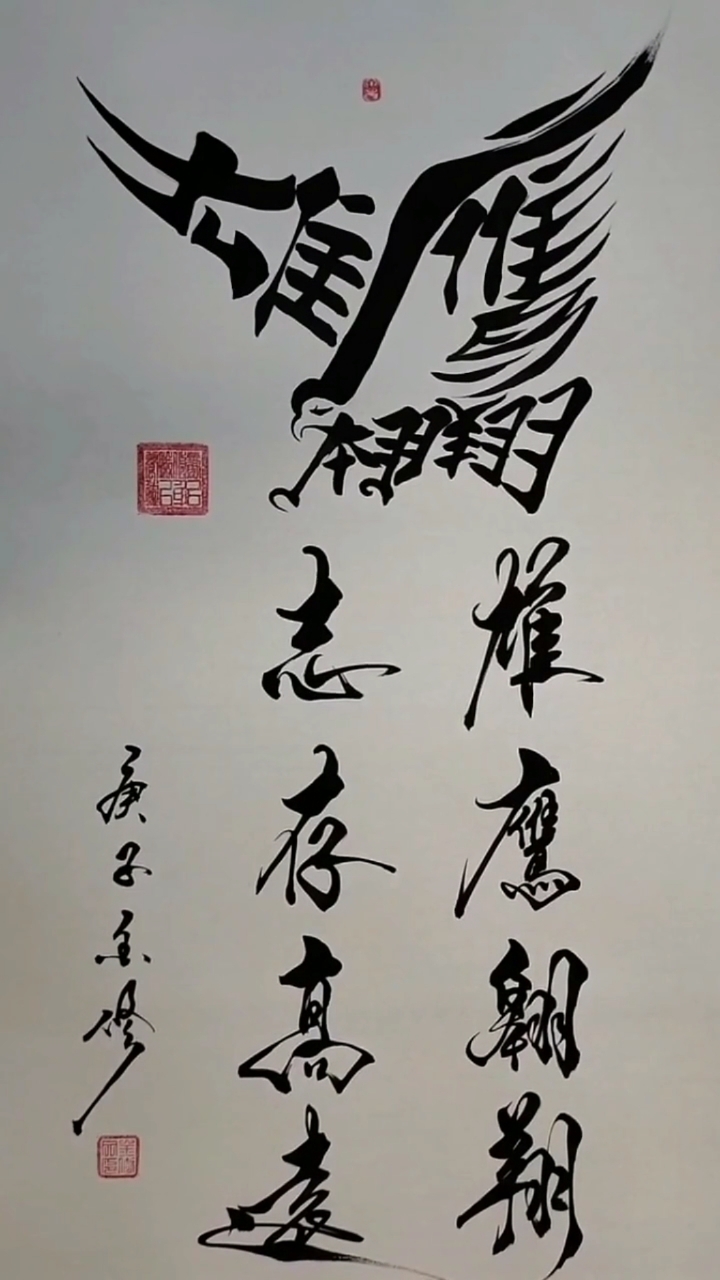 雄鹰翱翔
雄鷹翱翔
志存高遠
庚子